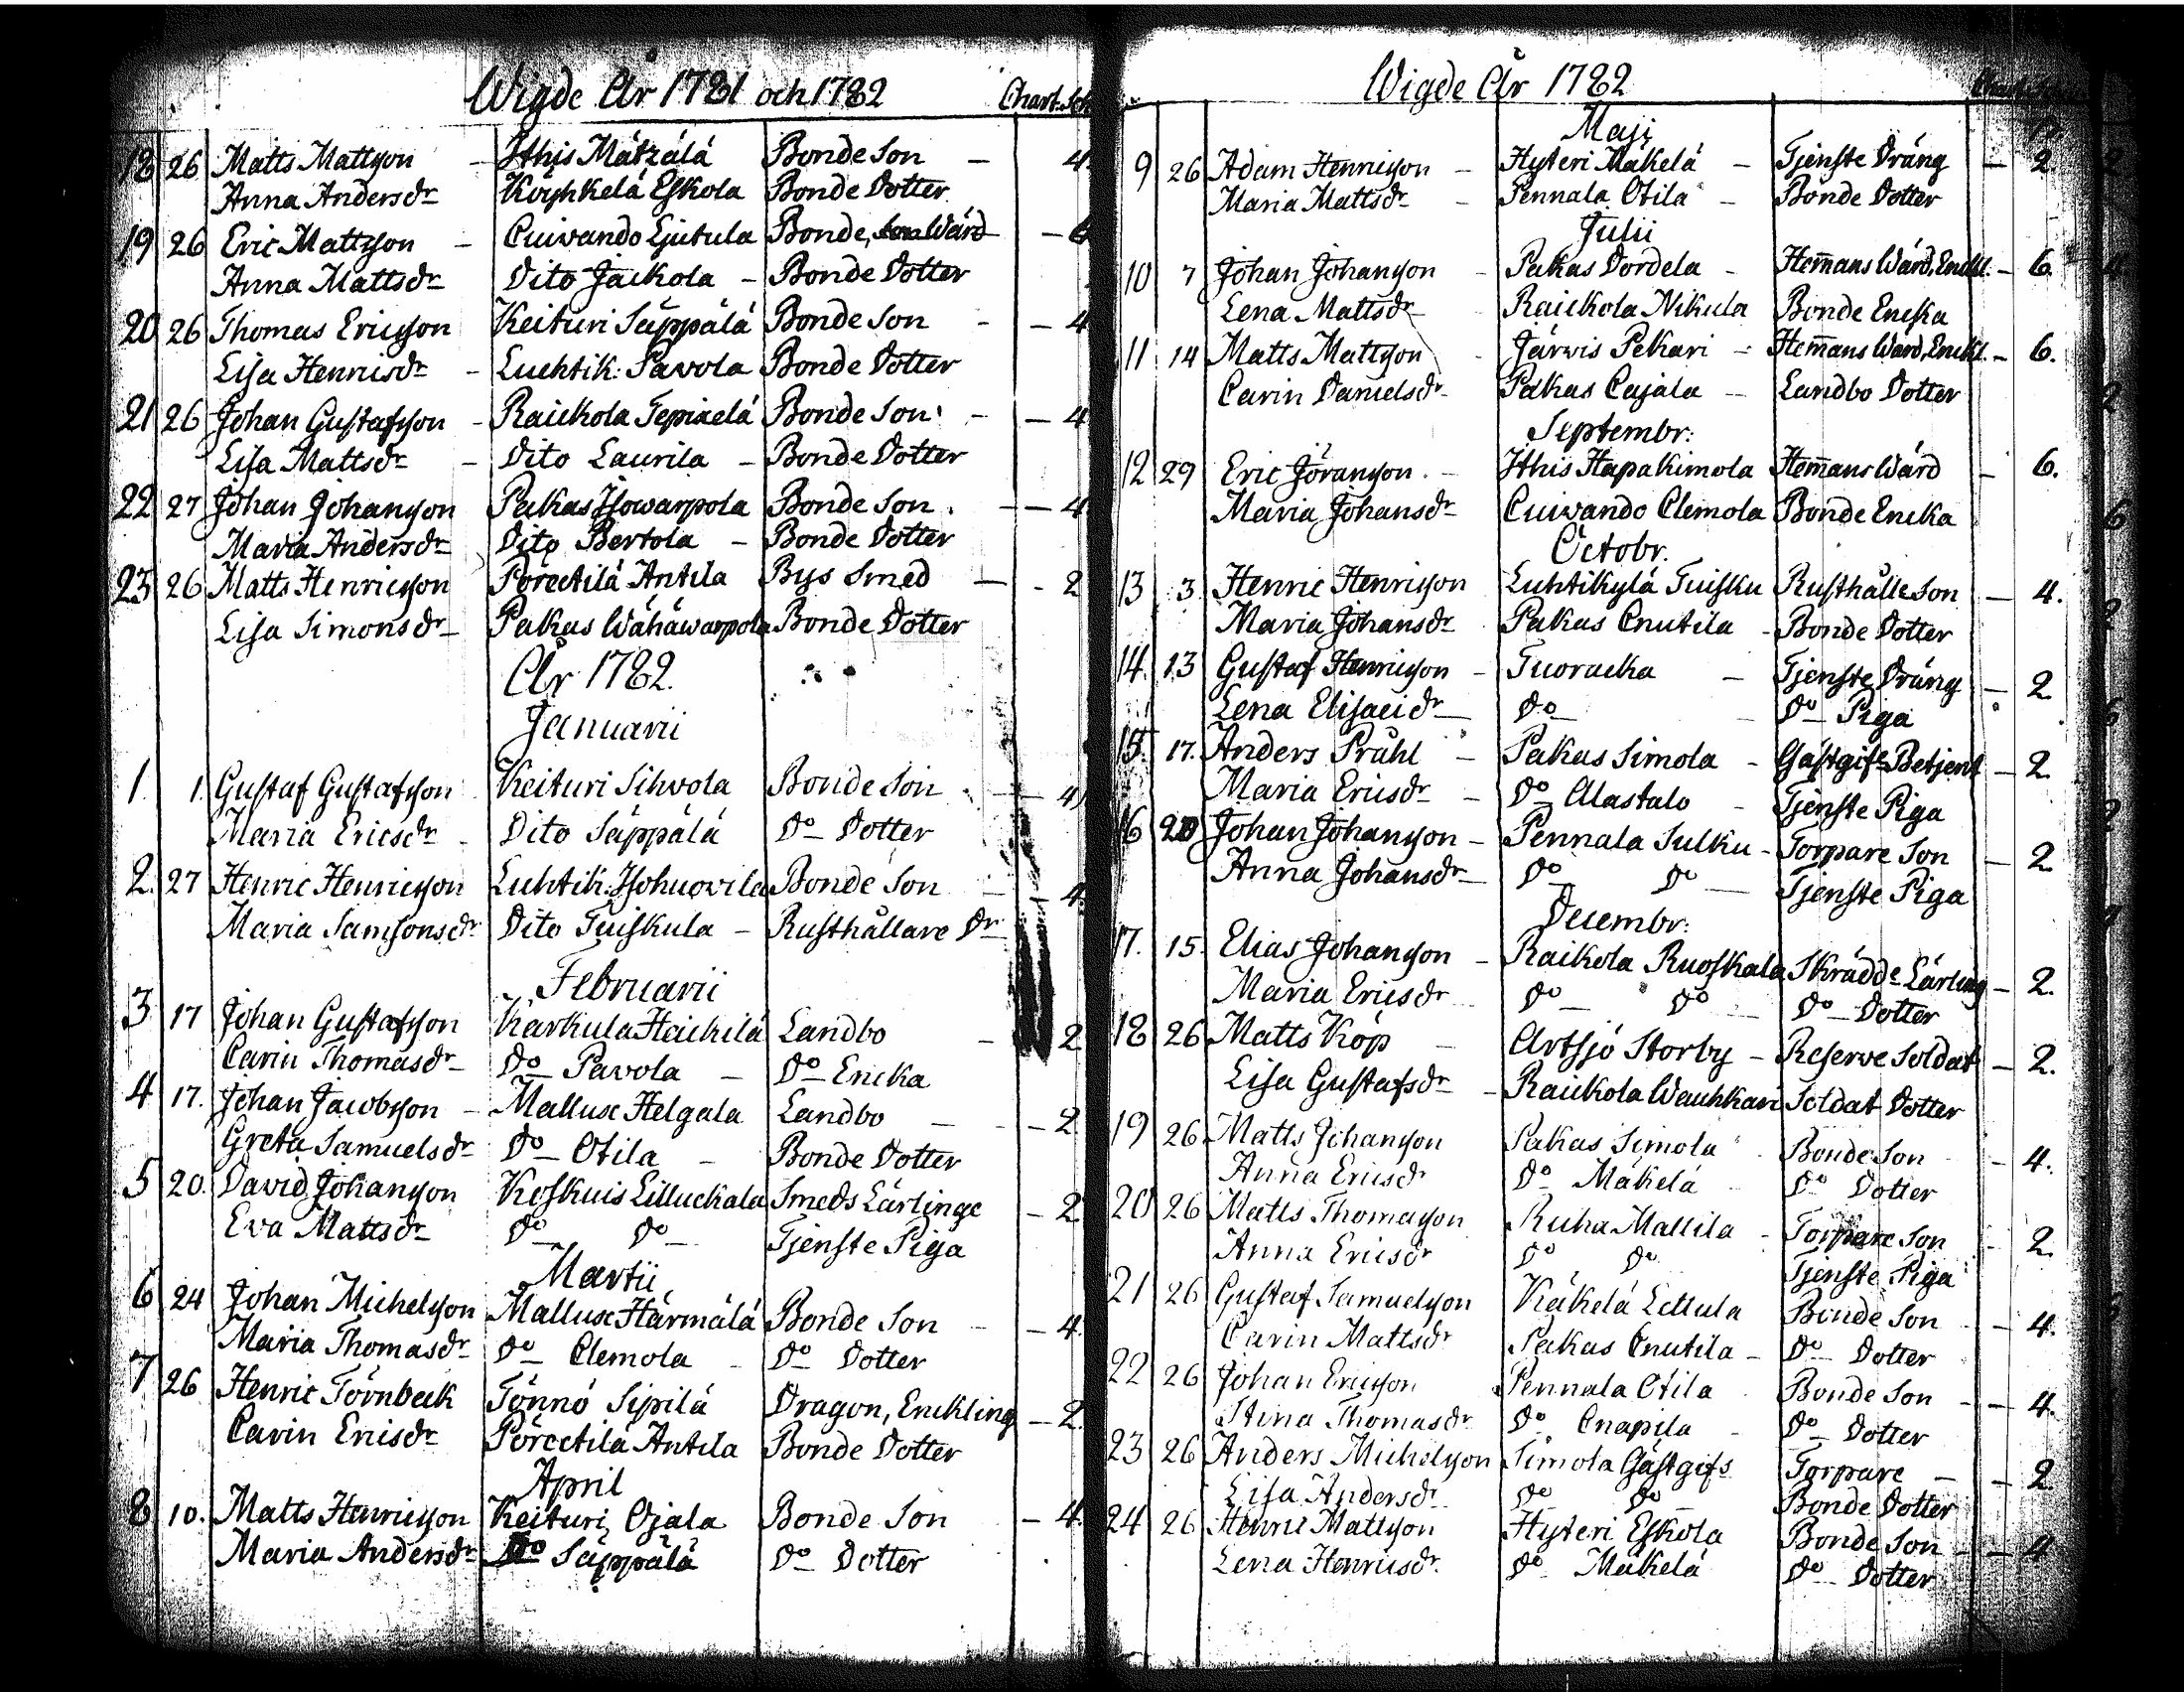 Wigde År 1781 och 1782 Chart. Sch
18 26 Matts Mattsson - Ithis Mätzälä Bonde Son - 4.
Anna Andersdr Koyhkelä Eskola Bonde Dotter
19 26 Eric Mattsson - Cuivando Ejutula Bonde, Wärd - 6
Anna Mattsdr Dito Jackola - Bonde Dotter
20 26 Thomas Ericsson Keituri Säppälä Bonde Son - - 4
Lisa Henricsdr - Luchtik: Pavola Bonde Dotter
21 26 Johan Gustafsson - Raickola Sepiaelä Bonde Son - - 4
Lisa Mattsdr - Dito Laurila - Bonde Dotter
22 27 Johan Johansson Pakas Isowarpola Bonde Son - - 4
Maria Andersdr Dito Bertola - Bonde Dotter
23 26 Matts Henricsson Pörcctilä Antila Bys Smed - - 2
Lisa Simonsdr Pakas Wähäwarpola Bonde Dotter
År 1782.
Januarii
1. 1. Gustaf Gustafsson Keituri Sihvola Bonde Son - 4
Maria Ericsdr - Dito Säppälä Do Dotter
2. 27 Henric Henricsson Luhtik. Isohuovila Bonde Son - 4.
Maria Samsonsdr Dito Tuiskula - Rusthållare Dr
Februarii
3 17 Johan Gustafsson Karkula Heickilä Landbo - 2
Carin Thomasdr Do Pavola - Do Encka
4 17. Johan Jacobsson - Mallusc Helgala Landbo - - 2
Greta Samuelsdr Do Otila - Bonde Dotter
5 20. David Johansson Koskuis Lilluckala Smeds Lärlinge - 2
Eva Mattsdr Do Do Tjenste Piga
Martii
6 24 Johan Michelsson Mallusc Härmälä Bonde Son - - 4.
Maria Thomasdr Do Clemola - Do Dotter
7 26 Henric Törnbeck Tönnö Sipilä Dragon, Enckling - 2.
Carin Ericsdr Pörcctilä Antila Bonde Dotter
April
8 10. Matts Henricsson Keituri Ojala Bonde Son - 4.
Maria Andersdr Do Säppälä Do Dotter
Wigde År 1782
Maji
9 26 Adam Henricsson - Hyteri Mäkelä - Tjenste Dräng - 2.
Maria Mattsdr - Pennala Otila - Bonde Dotter
Julii
10 7 Johan Johansson - Pakas Dordela - Hemmans Wärd, Enckl. - 6.
Lena Mattsdr Raickola Nikula Bonde Encka
11 14 Matts Mattsson - Järvis Pekari - Hemmans Wärd, Enckl. - 6.
Carin Danielsdr Pakas Cajala - Landbo Dotter
Septembr:
12 29 Eric Jöransson - Ithis Hapakimola Hemmans Wärd - 6.
Maria Johansdr Cuivando Clemola Bonde Encka
Octobr.
13 3. Henric Henricsson Luhtikylä Tuisku Rusthålle Son - 4.
Maria Johansdr Pakas Cnutila - Bonde Dotter
14. 13 Gustaf Henricsson - Tuoracka - Tjenste Dräng - 2
Lena Elisaeidr Do - Do Piga
15. 17. Anders Pråhl - Pakas Simola - Gästgifs Betjent - 2
Maria Ericsdr - Do Alastalo - Tjenste Piga
16 20 Johan Johansson - Pennala Sulku - Torpare Son - 2
Anna Johansdr Do Do Tjenste Piga
Decembr:
17. 15. Elias Johansson - Raikola Ruoskala Skrädde Lärling - 2.
Maria Ericsdr Do Do Do Dotter
18 26 Matts Köp - Artsjö Storby - Reserve Soldat - 2.
Lisa Gustafsdr - Raickola Wauhkari Soldat Dotter
19 26 Matts Johansson Pakas Simola Bonde Son - 4.
Anna Ericsdr Do Mäkelä Do Dotter
20 26 Matts Thomasson Ruha Mallila - Torpare Son - 2.
Anna Ericsdr Do Do Tjenste Piga
21 26 Gustaf Samuelsson Käkelä Lettula Bonde Son - 4.
Carin Mattsdr Pakas Cnutila - Do Dotter
22 26 Johan Ericsson Pennala Otila Bonde Son - - 4.
Stina Thomasdr Do Cnapila - Do Dotter
23 26 Anders Michelsson Simola Gästgifs Torpare - - 2.
Lisa Andersdr Do Do Bonde Dotter
24 26 Henric Mattsson Hyteri Eskola Bonde Son - - 4
Lena Henricsdr. Do Mäkelä Do Dotter